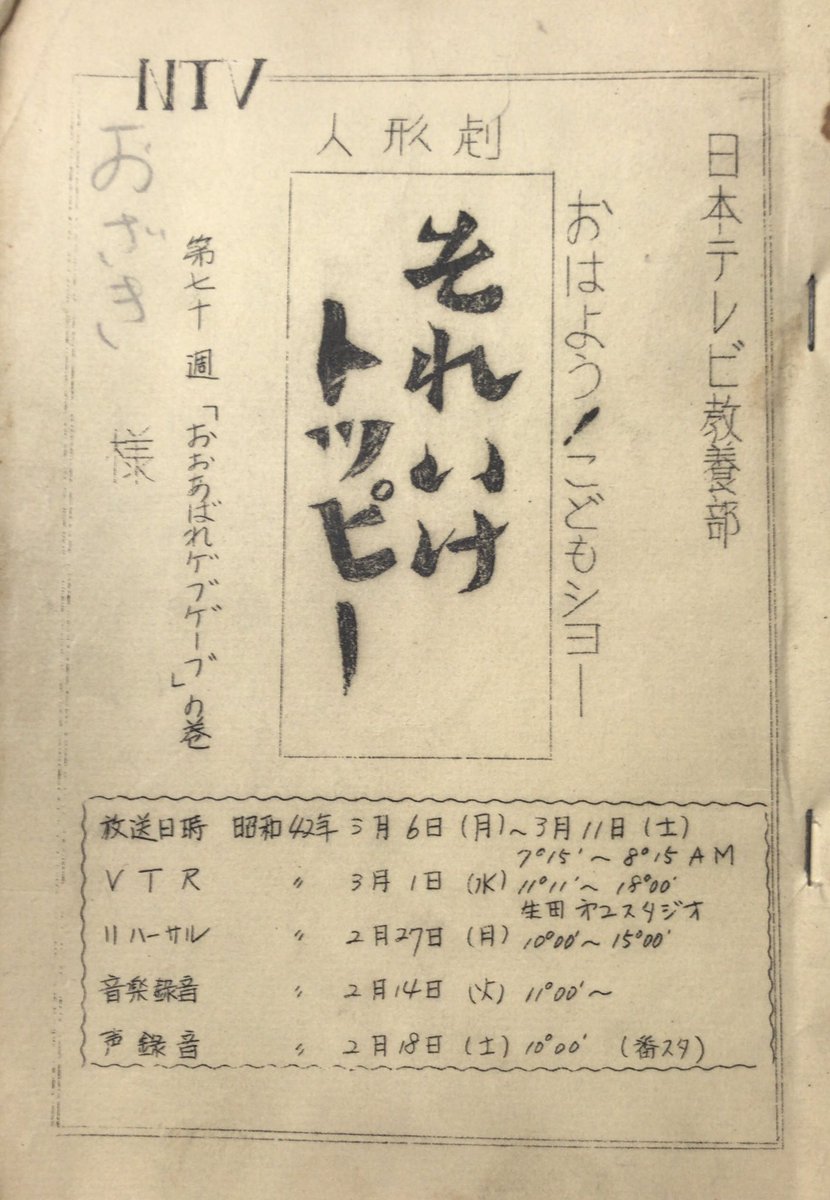 NTV
日本テレビ教養部
おはよう!こどもショー
人形劇
それいけ
トッピー
第七十週「おおあばれゲブゲーブ」の巻
おざき
様
放送日時 昭和42年 3月6日(月)~3月11日(土)
7°15'~8°15 AM
VTR 〃 3月1日(水) 11°11'~18°00'
生田 オ2スタジオ
リハーサル 〃 2月27日(月) 10°00'~15°00'
音楽録音 〃 2月14日(火) 11°00'~
声録音 〃 2月18日(土) 10°00' (番スタ)